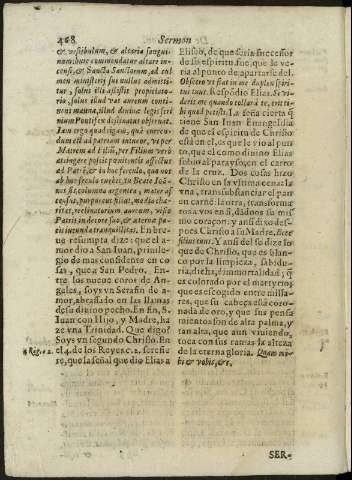 468 Sermon
& vestibulum, & altaria sangui-
nem sibute commendatur altare in-
censi, & Sancta Sanctorum, ad cul-
men ministerij sui nullus admitti-
tur, solus dis altistis proprietato-
rio, solus illud vas aureum conti-
nens manna, illud divinæ legis scri-
nium Pontifex dilectus observat.
Iam ergo quadiguam, quà currẽ-
dum est ad patrem minor, vt per
Matrem ad Filium, per Filium verò
attingere possit pœnitentis affectus
ad Patrẽ, & in hoc seculo, quæ vos
ab hoc seculo
nis
charitatis, reclinatorium aureum, visio
Patris in die, & æterna pa-
cis tranquillitas. En bre-
ue resumpta dize: que el a-
mor dio a San Iuan, priuile-
gio de mas confidente en co-
sas, que a San Pedro. Entre
los nueue coros de An-
geles, soys vn Serafin de a-
mor, abrasado en las llamas
de su diuino pecho. En fin, S.
Iuan con Hijo, y Madre, ha-
ze vna Trinidad. Que digo?
Soys vn segundo Christo. En
4 Reg. c. 2. el 4. de los Reyes c. 2. se refie-
re, que la señal que dio Elias a
Eliseo, de que seria sucessor
de su espiritu fue, que le ve-
ria al punto de apartarse del.
Obsecro vt fiat in me duplex spiri-
tus tuus. Respõdio Elias. Si vi-
deris me quando tollar à te, erit ti-
bi quod petisti. La seña cierta q̃
tiene San Iuan Euangelista
de que el espiritu de Christo
està en el, es que le vio al pun-
to, que el como diuino Elias
subio al parayso, en el carro
de la cruz. Dos cosas hizo
Christo en la vltima cena: la
vna, transubstanciar el pan
en carne: la otra, transforma-
ros a vos en si, dãdoos su mis-
mo coraçon: y ansi dixo des-
pues Christo a su Madre, Ecce
filius tuus. Y ansi del se dize lo
que de Christo, que es blan-
co por la limpieza, sabidu-
ria, dicha, è inmortalidad; q̃
es colorado por el martyrio:
que es escogido entre milla-
res, que su cabeça està coro-
nada de oro, y que sus pensa-
mientos son de alta palma, y
tan alta, que aun viuiendo,
toca con sus ramas la alteza
de la eterna gloria. Quam mi-
hi & vobis, &c.
SER-